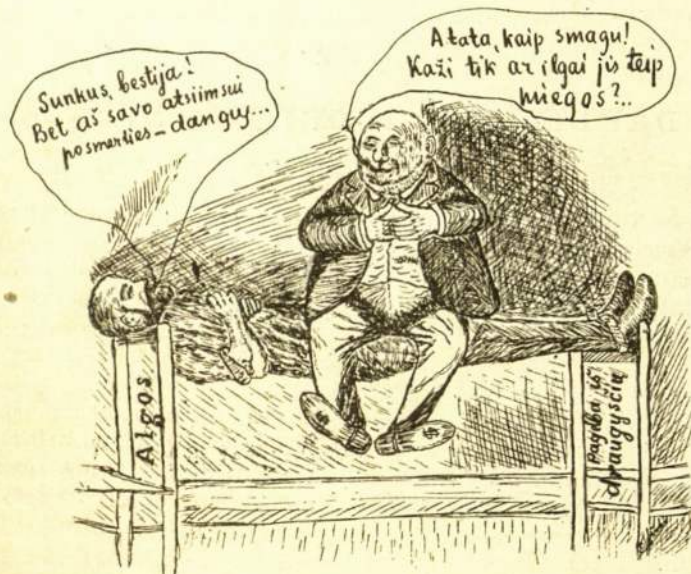 Sunkus, bestija!
Bet aš savo atsiimsiu
posmerties – danguj...
Atata, kaip smagu!
Kaži tik ar ilgai jis teip
miegos?..
Algos
Pagelba iš
draugysčių
$
$